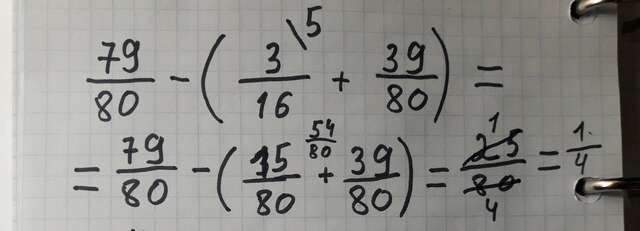 79/80 - ( 3\5/16 + 39/80 ) =
= 79/80 - ( 15/80 54/80 + 39/80 ) = 25 1/80 4 = 1/4